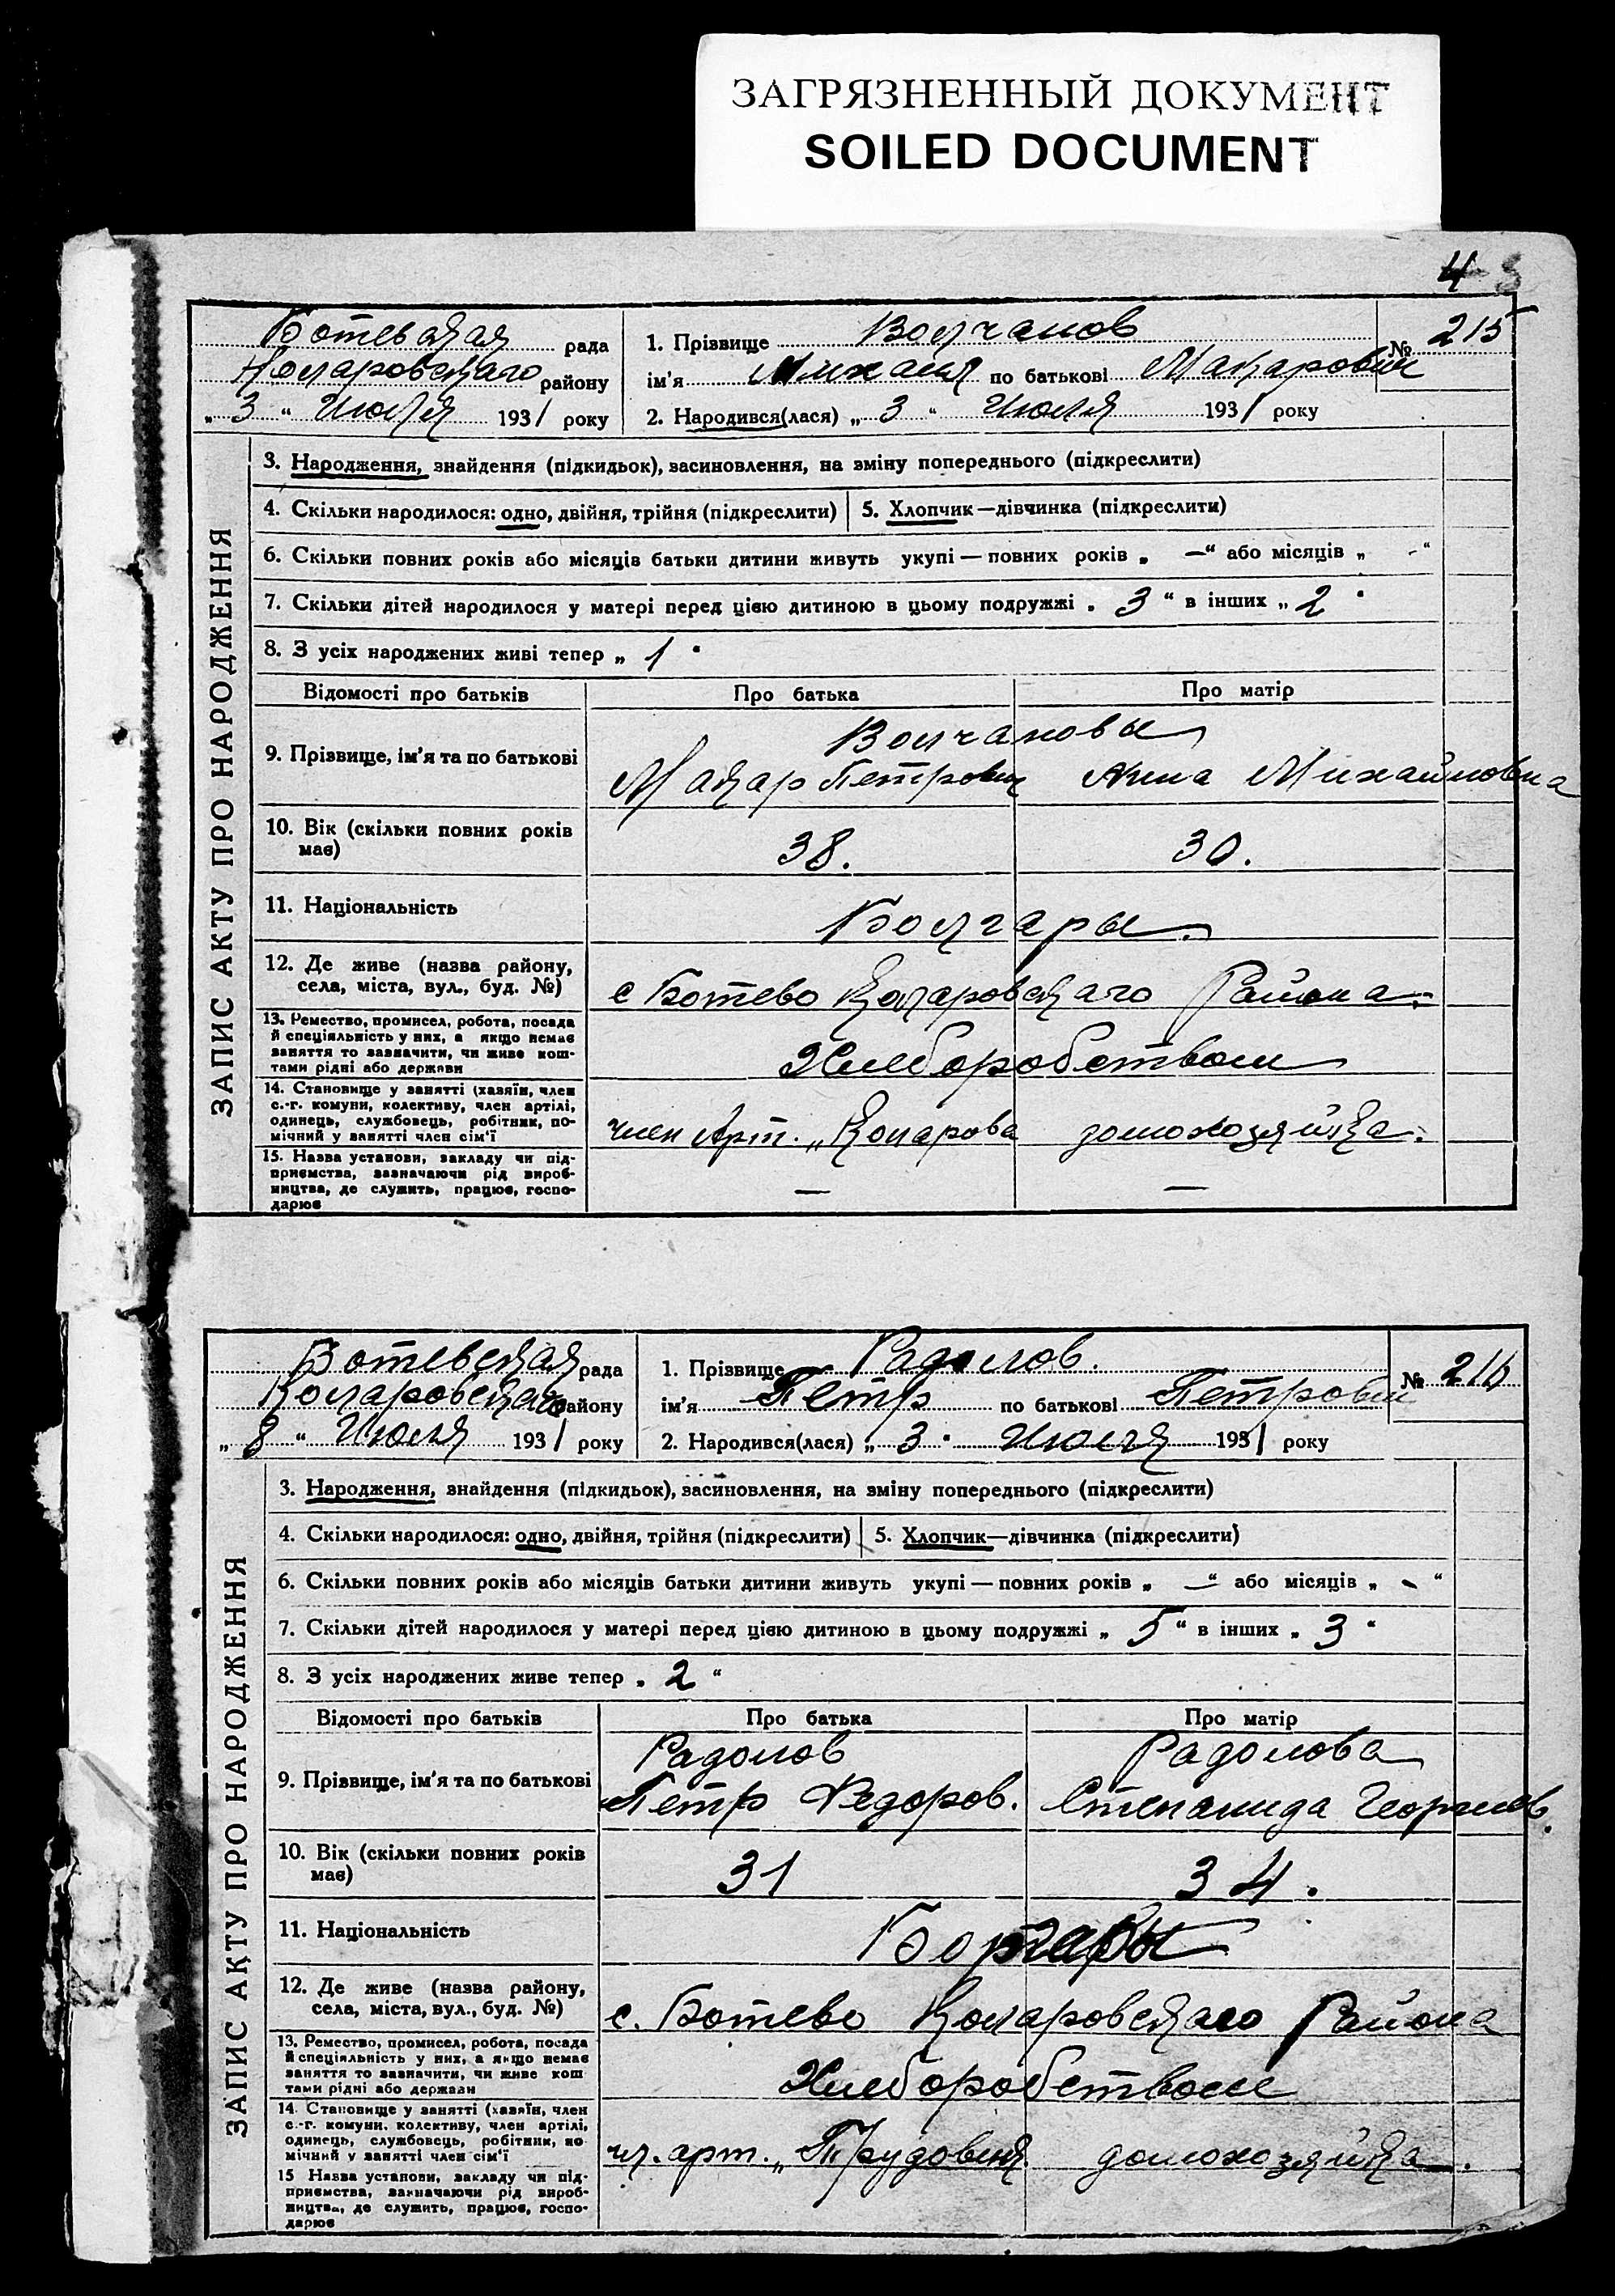 ЗАГРЯЗНЕННЫЙ ДОКУМЕНТ
SOILED DOCUMENT
4
Ботевская рада
Коларовскаго району
„ 3 “ Июля 1931 року
1. Прізвище Волчанов
№ 215
ім’я Михаил по батькові Макарович
2. Народився(лася) „ 3 “ Июля 1931 року
ЗАПИС АКТУ ПРО НАРОДЖЕННЯ
3. Народження, знайдення (підкидьок), засиновлення, на зміну попереднього (підкреслити)
4. Скільки народилося: одно, двійня, трійня (підкреслити) 5. Хлопчик—дівчинка (підкреслити)
6. Скільки повних років або місяців батьки дитини живуть укупі — повних років „ —“ або місяців „ -“
7. Скільки дітей народилося у матері перед цією дитиною в цьому подружжі „ 3 “ в інших „ 2 “
8. З усіх народжених живі тепер „ 1 “
Відомості про батьків Про батька Про матір
9. Прізвище, ім’я та по батькові
Волчановы
Макар Петрович Анна Михайловна
10. Вік (скільки повних років
має)
38. 30.
11. Національність
Болгары.
12. Де живе (назва району,
села, міста, вул., буд. №)
с Ботево Коларовскаго Района.
13. Ремество, промисел, робота, посада
й спеціяльність у них, а якщо немає
заняття то зазначити, чи живе кош-
тами рідні або держави
Хлеборобством
14. Становище у занятті (хазяїн, член
с.-г. комуни, колективу, член артілі,
одинець, службовець, робітник, по-
мічний у занятті член сім’ї
член Арт. „Коларова домохозяйка.
15. Назва установи, закладу чи під-
приємства, зазначаючи рід вироб-
ництва, де служить, працює, госпо-
дарює
— —
Ботевская рада
Коларовскаго району
„ 8 “ Июля 1931 року
1. Прізвище Радолов.
№ 216
ім’я Петр по батькові Петрович
2. Народився(лася) „ 3 “ Июля 1931 року
ЗАПИС АКТУ ПРО НАРОДЖЕННЯ
3. Народження, знайдення (підкидьок), засиновлення, на зміну попереднього (підкреслити)
4. Скільки народилося: одно, двійня, трійня (підкреслити) 5. Хлопчик—дівчинка (підкреслити)
6. Скільки повних років або місяців батьки дитини живуть укупі — повних років „ —“ або місяців „ - “
7. Скільки дітей народилося у матері перед цією дитиною в цьому подружжі „ 5 “ в інших „ 3 “
8. З усіх народжених живе тепер „ 2 “
Відомості про батьків Про батька Про матір
9. Прізвище, ім’я та по батькові
Радолов Радолова
Петр Федоров. Степанида Георгиев.
10. Вік (скільки повних років
має)
31 34.
11. Національність
Болгары
12. Де живе (назва району,
села, міста, вул., буд. №)
с. Ботево Коларовскаго Района
13. Ремество, промисел, робота, посада
й спеціяльність у них, а якщо немає
заняття то зазначити, чи живе кош
тами рідні або держави
Хлеборобством
14. Становище у занятті (хазяїн, член
с.-г. комуни, колективу, член артілі,
одинець, службовець, робітник, по
мічний у занятті член сім’ї
чл. арт. „Трудовик домохозяйка.
15 Назва установи, закладу чи під-
приємства, зазначаючи рід вироб-
ництва, де служить, працює, госпо-
дарює